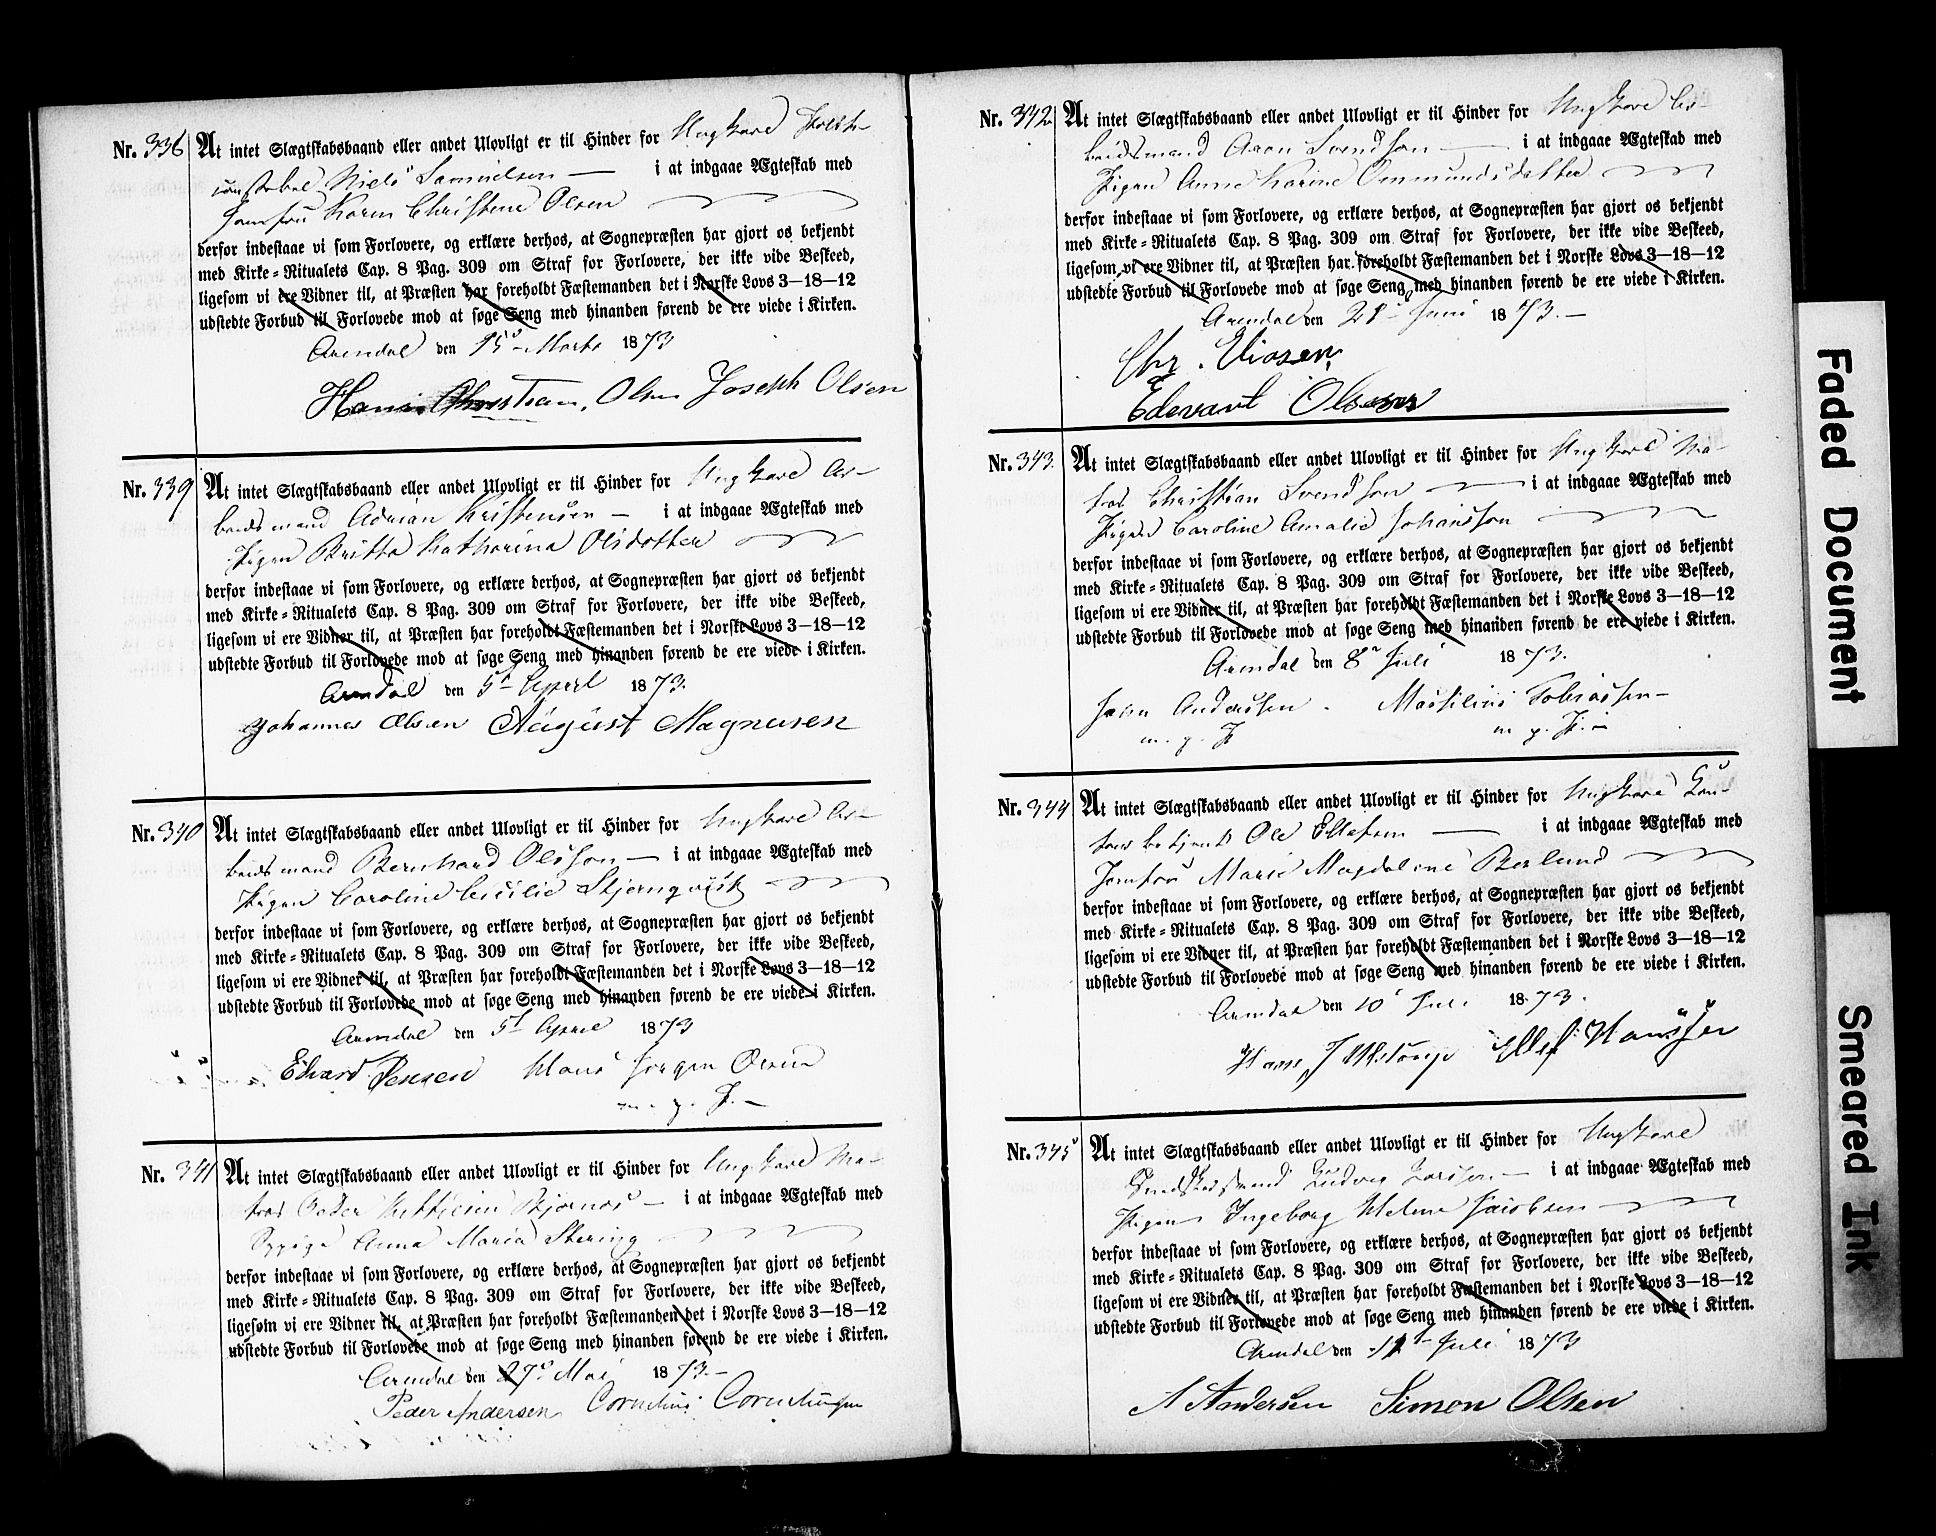 Nr. 338 At intet Slægtskabsbaand eller andet Ulovligt er til Hinder for Ungkarl
Niels Samuelsen — i at indgaae Ægteskab med
Jomfru Karen Christine Olsen
derfor indestaae vi som Forlovere, og erklære derhos, at Sognepræsten har gjort os bekjendt
med Kirke-Ritualets Cap. 8 Pag. 309 om Straf for Forlovere, der ikke vide Beskeed,
ligesom vi ere Vidner til, at Præsten har foreholdt Fæstemanden det i Norske Lovs 3—18—12
udstedte Forbud til Forlovede mod at søge Seng med hinanden førend de ere viede i Kirken.
Arendal den 15de Marts 1873
Hans Christian Olsen Joseph Olsen
Nr. 339 At intet Slægtskabsbaand eller andet Ulovligt er til Hinder for Ungkarl Ar-
beidsmand Adrian Kristensen — i at indgaae Ægteskab med
Pigen Britta Katharina Olsdotter
derfor indestaae vi som Forlovere, og erklære derhos, at Sognepræsten har gjort os bekjendt
med Kirke-Ritualets Cap. 8 Pag. 309 om Straf for Forlovere, der ikke vide Beskeed,
ligesom vi ere Vidner til, at Præsten har foreholdt Fæstemanden det i Norske Lovs 3—18—12
udstedte Forbud til Forlovede mod at søge Seng med hinanden førend de ere viede i Kirken.
Arendal den 5t April 1873.
Johannes Olsen August Magnusen
Nr. 340 At intet Slægtskabsbaand eller andet Ulovligt er til Hinder for Ungkarl Ar-
beidsmand Bernhard Olsson — i at indgaae Ægteskab med
Pigen Caroline Cecilie Stjernqvist
derfor indestaae vi som Forlovere, og erklære derhos, at Sognepræsten har gjort os bekjendt
med Kirke-Ritualets Cap. 8 Pag. 309 om Straf for Forlovere, der ikke vide Beskeed,
ligesom vi ere Vidner til, at Præsten har foreholdt Fæstemanden det i Norske Lovs 3—18—12
udstedte Forbud til Forlovede mod at søge Seng med hinanden førend de ere viede i Kirken.
Arendal den 5t April 1873
Edvard Jensen Hans Jørgen Olsen
m. p. P.
Nr. 341 At intet Slægtskabsbaand eller andet Ulovligt er til Hinder for Ungkarl Ma-
tros Peder Bjornos — i at indgaae Ægteskab med
Anna Maria
derfor indestaae vi som Forlovere, og erklære derhos, at Sognepræsten har gjort os bekjendt
med Kirke-Ritualets Cap. 8 Pag. 309 om Straf for Forlovere, der ikke vide Beskeed,
ligesom vi ere Vidner til, at Præsten har foreholdt Fæstemanden det i Norske Lovs 3—18—12
udstedte Forbud til Forlovede mod at søge Seng med hinanden førend de ere viede i Kirken.
Arendal den 27de Mai 1873.
Peder Andersen Cornelius
Nr. 342 At intet Slægtskabsbaand eller andet Ulovligt er til Hinder for Ungkarl Ar-
beidsmand Aron Svendson — i at indgaae Ægteskab med
Pigen Anne Karine Ommundsdatter
derfor indestaae vi som Forlovere, og erklære derhos, at Sognepræsten har gjort os bekjendt
med Kirke-Ritualets Cap. 8 Pag. 309 om Straf for Forlovere, der ikke vide Beskeed,
ligesom vi ere Vidner til, at Præsten har foreholdt Fæstemanden det i Norske Lovs 3—18—12
udstedte Forbud til Forlovede mod at søge Seng med hinanden førend de ere viede i Kirken.
Arendal den 21 Juni 1873.
Chr.
Edevart Olsen
Nr. 343. At intet Slægtskabsbaand eller andet Ulovligt er til Hinder for Ungkarl Ma-
tros Christian Svendson — i at indgaae Ægteskab med
Pigen Caroline Amalie Johansson
derfor indestaae vi som Forlovere, og erklære derhos, at Sognepræsten har gjort os bekjendt
med Kirke-Ritualets Cap. 8 Pag. 309 om Straf for Forlovere, der ikke vide Beskeed,
ligesom vi ere Vidner til, at Præsten har foreholdt Fæstemanden det i Norske Lovs 3—18—12
udstedte Forbud til Forlovede mod at søge Seng med hinanden førend de ere viede i Kirken.
Arendal den 8de Juli 1873.
John Anderssen. Tobiassen
m. p. P. m. p. P.
Nr. 344 At intet Slægtskabsbaand eller andet Ulovligt er til Hinder for Ungkarl
Ole Ellefsen — i at indgaae Ægteskab med
Jomfru Marie Magdaline Berlund
derfor indestaae vi som Forlovere, og erklære derhos, at Sognepræsten har gjort os bekjendt
med Kirke-Ritualets Cap. 8 Pag. 309 om Straf for Forlovere, der ikke vide Beskeed,
ligesom vi ere Vidner til, at Præsten har foreholdt Fæstemanden det i Norske Lovs 3—18—12
udstedte Forbud til Forlovede mod at søge Seng med hinanden førend de ere viede i Kirken.
Arendal den 10 Juli 1873.
Hans J Ellef Hanssen
Nr. 345 At intet Slægtskabsbaand eller andet Ulovligt er til Hinder for Ungkarl
Ludvig Larsson — i at indgaae Ægteskab med
Pigen Ingeborg Helene Jacobsen
derfor indestaae vi som Forlovere, og erklære derhos, at Sognepræsten har gjort os bekjendt
med Kirke-Ritualets Cap. 8 Pag. 309 om Straf for Forlovere, der ikke vide Beskeed,
ligesom vi ere Vidner til, at Præsten har foreholdt Fæstemanden det i Norske Lovs 3—18—12
udstedte Forbud til Forlovede mod at søge Seng med hinanden førend de ere viede i Kirken.
Arendal den 11t Juli 1873
A Andersen Simon Olsen
Faded Document
Smeared Ink